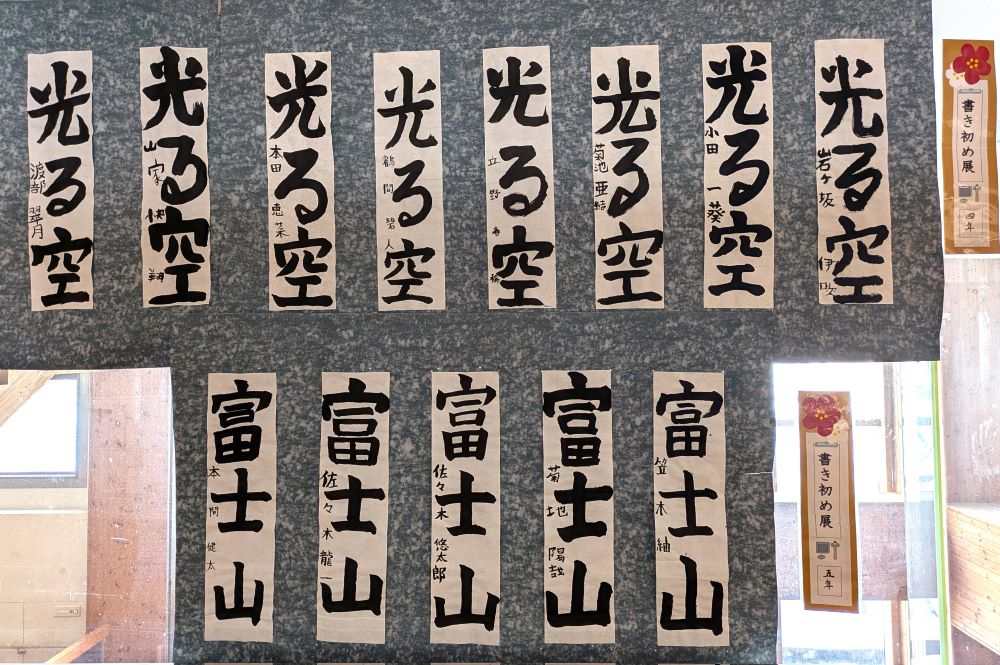 書き初め展
四年
光る空
岩ケ坂 伊吹
光る空
小田 一葵
光る空
菊池 亜結
光る空
立野
光る空
鶴間 碧人
光る空
本田 恵菜
光る空
山家 快翔
光る空
渡部 翠月
書き初め展
五年
富士山
笠本 紬
富士山
菊地 陽哉
富士山
佐々木 悠太郎
富士山
佐々木 龍一
富士山
本間 健太